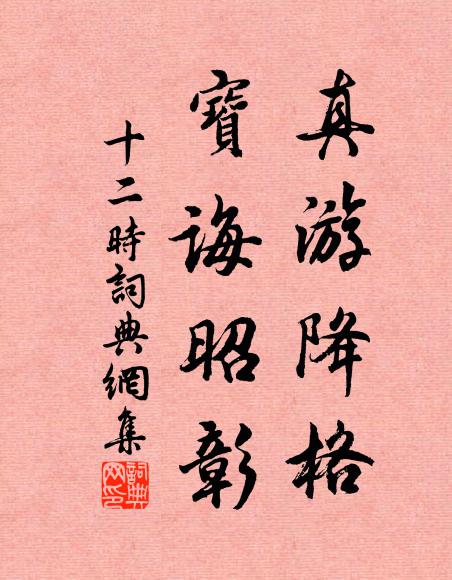 真游降格
寶誨昭彰
十二時詞典網集
詞典網印